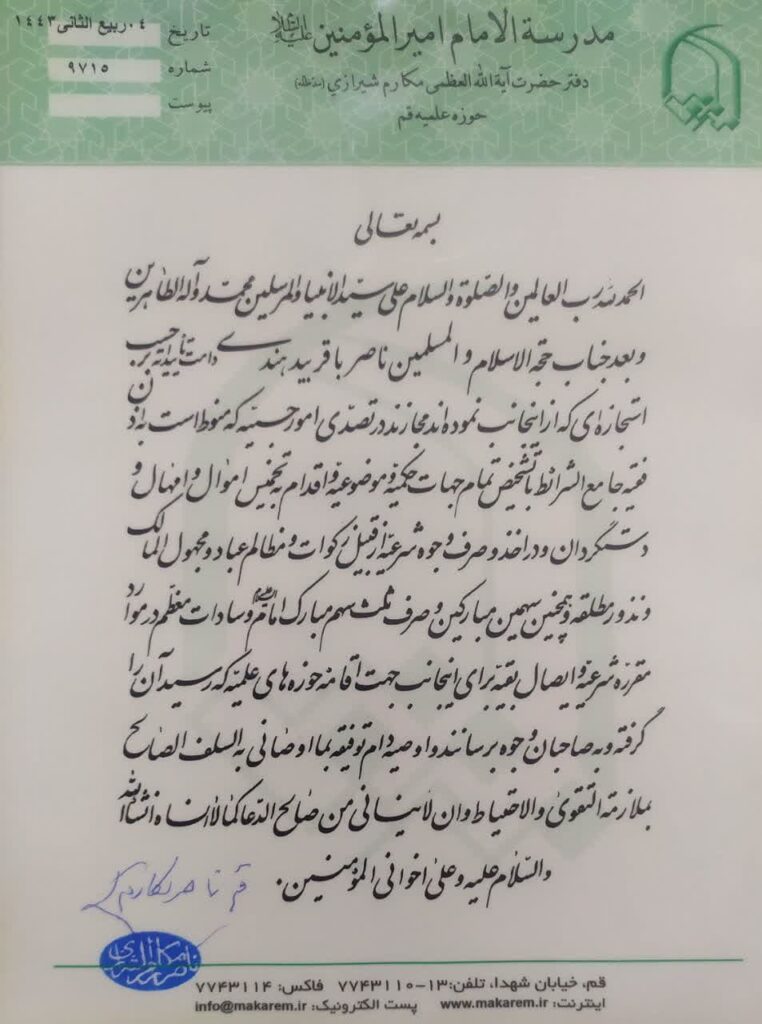 مدرسة الامام امیرالمؤمنین علیه‌السلام
دفتر حضرت آیة الله العظمی مکارم شیرازی (مدظله)
حوزه علمیه قم
تاریخ ۰٤ربیع الثانی ۱٤٤۳
شماره ۹۷۱۵
پیوست
بسمه تعالی
الحمد لله رب العالمین والصلوة والسلام علی سید الانبیاء والمرسلین محمد وآله الطاهرین
وبعد جناب حجة الاسلام و المسلمین ناصر باقر بید هندی دامت تأییداته برحسب
استجازه‌ای که از اینجانب نموده‌اند مجازند در تصدی امور حسبیه که منوط است به اذن
فقیه جامع الشرائط با تشخیص تمام جهات حکمیه و موضوعیه و اقدام به تخمیس اموال و امهال و
دستگردان و در اخذ و صرف وجوه شرعیه از قبیل زکوات و مظالم عباد و مجهول المالک
و نذور مطلقه و همچنین سهمین مبارکین و صرف ثلث سهم مبارک امام و سادات معظم در موارد
مقرره شرعیه و ایصال بقیه برای اینجانب جهت اقامه حوزه‌های علمیه که رسید آن را
گرفته و به صاحبان وجوه برسانند و اوصیه دام توفیقه بما اوصانی به السلف الصالح
بملازمة التقوی والاحتیاط وان لاینسانی من صالح الدعا کما لا انساه انشاءالله
والسلام علیه وعلی اخوانی المؤمنین.
قم ناصر مکارم
ناصر مکارم الشیرازی
قم، خیابان شهدا، تلفن:۱۳-۷۷۴۳۱۱۰ فاکس: ۷۷۴۳۱۱۴
اینترنت: www.makarem.ir پست الکترونیک: info@makarem.ir